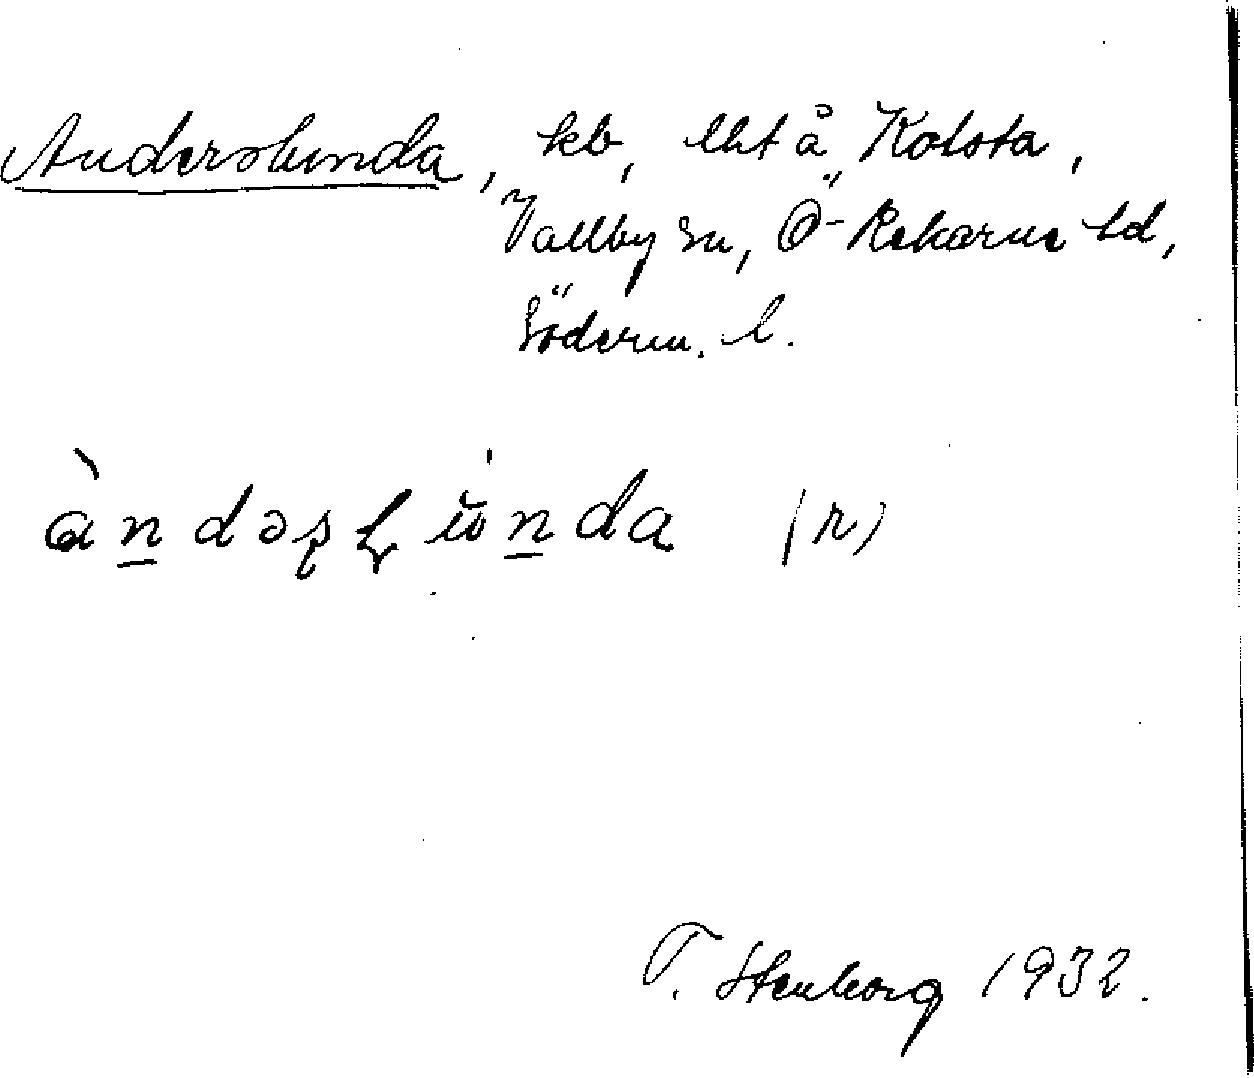 Anderslunda, kb, lht å Kolsta,
Vallby sn, Ö-Rekarne hd,
Söderm. l.
àndəʂl̥ùnda (r)
T. Stenborg 1932.